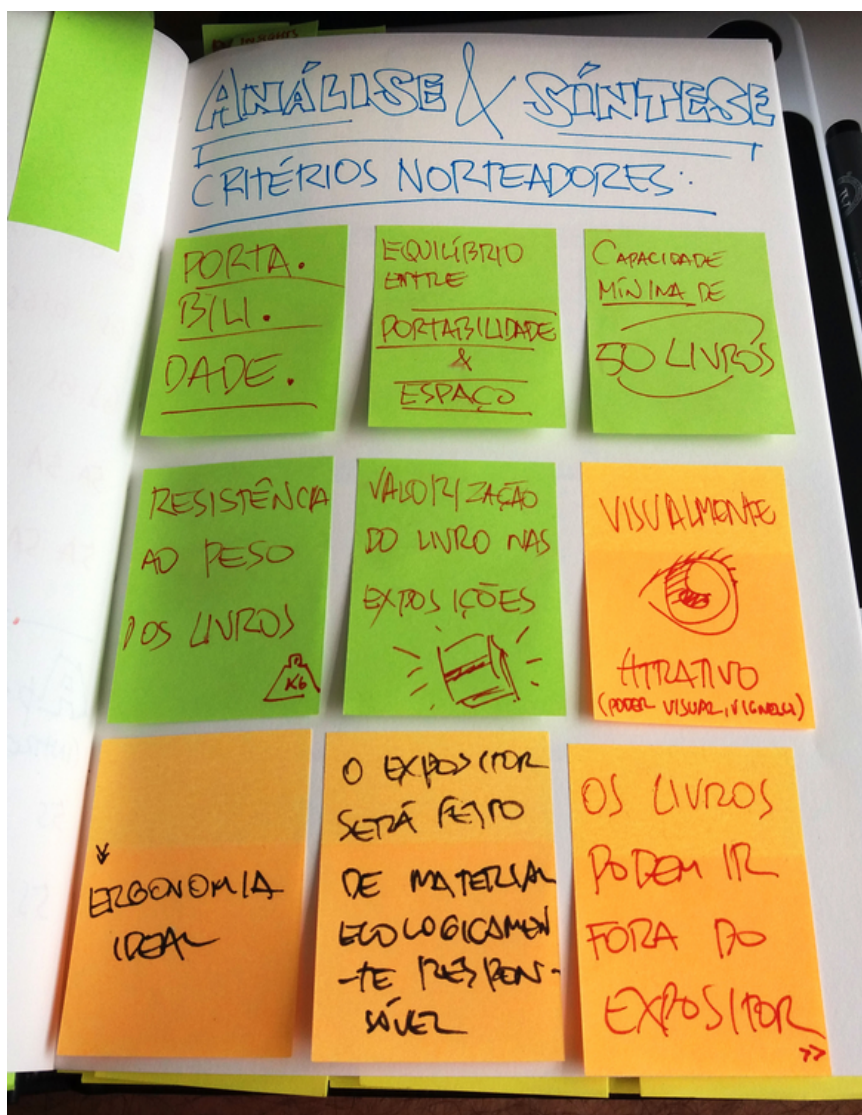 ANÁLISE & SÍNTESE
CRITÉRIOS NORTEADORES:
PORTA.
BILI.
DADE.
EQUILÍBRIO
ENTRE
PORTABILIDADE
&
ESPAÇO
CAPACIDADE
MÍNIMA DE
50 LIVROS
RESISTÊNCIA
AO PESO
DOS LIVROS
KG
VALORIZAÇÃO
DO LIVRO NAS
EXPOSIÇÕES
VISUALMENTE
ATRATIVO
(PODER VISUAL, VIGNELLI)
ERGONOMIA
IDEAL
O EXPOSITOR
SERÁ FEITO
DE MATERIAL
ECOLOGICAMEN
-TE RESPON-
SÁVEL
OS LIVROS
PODEM IR
FORA DO
EXPOSITOR
>>